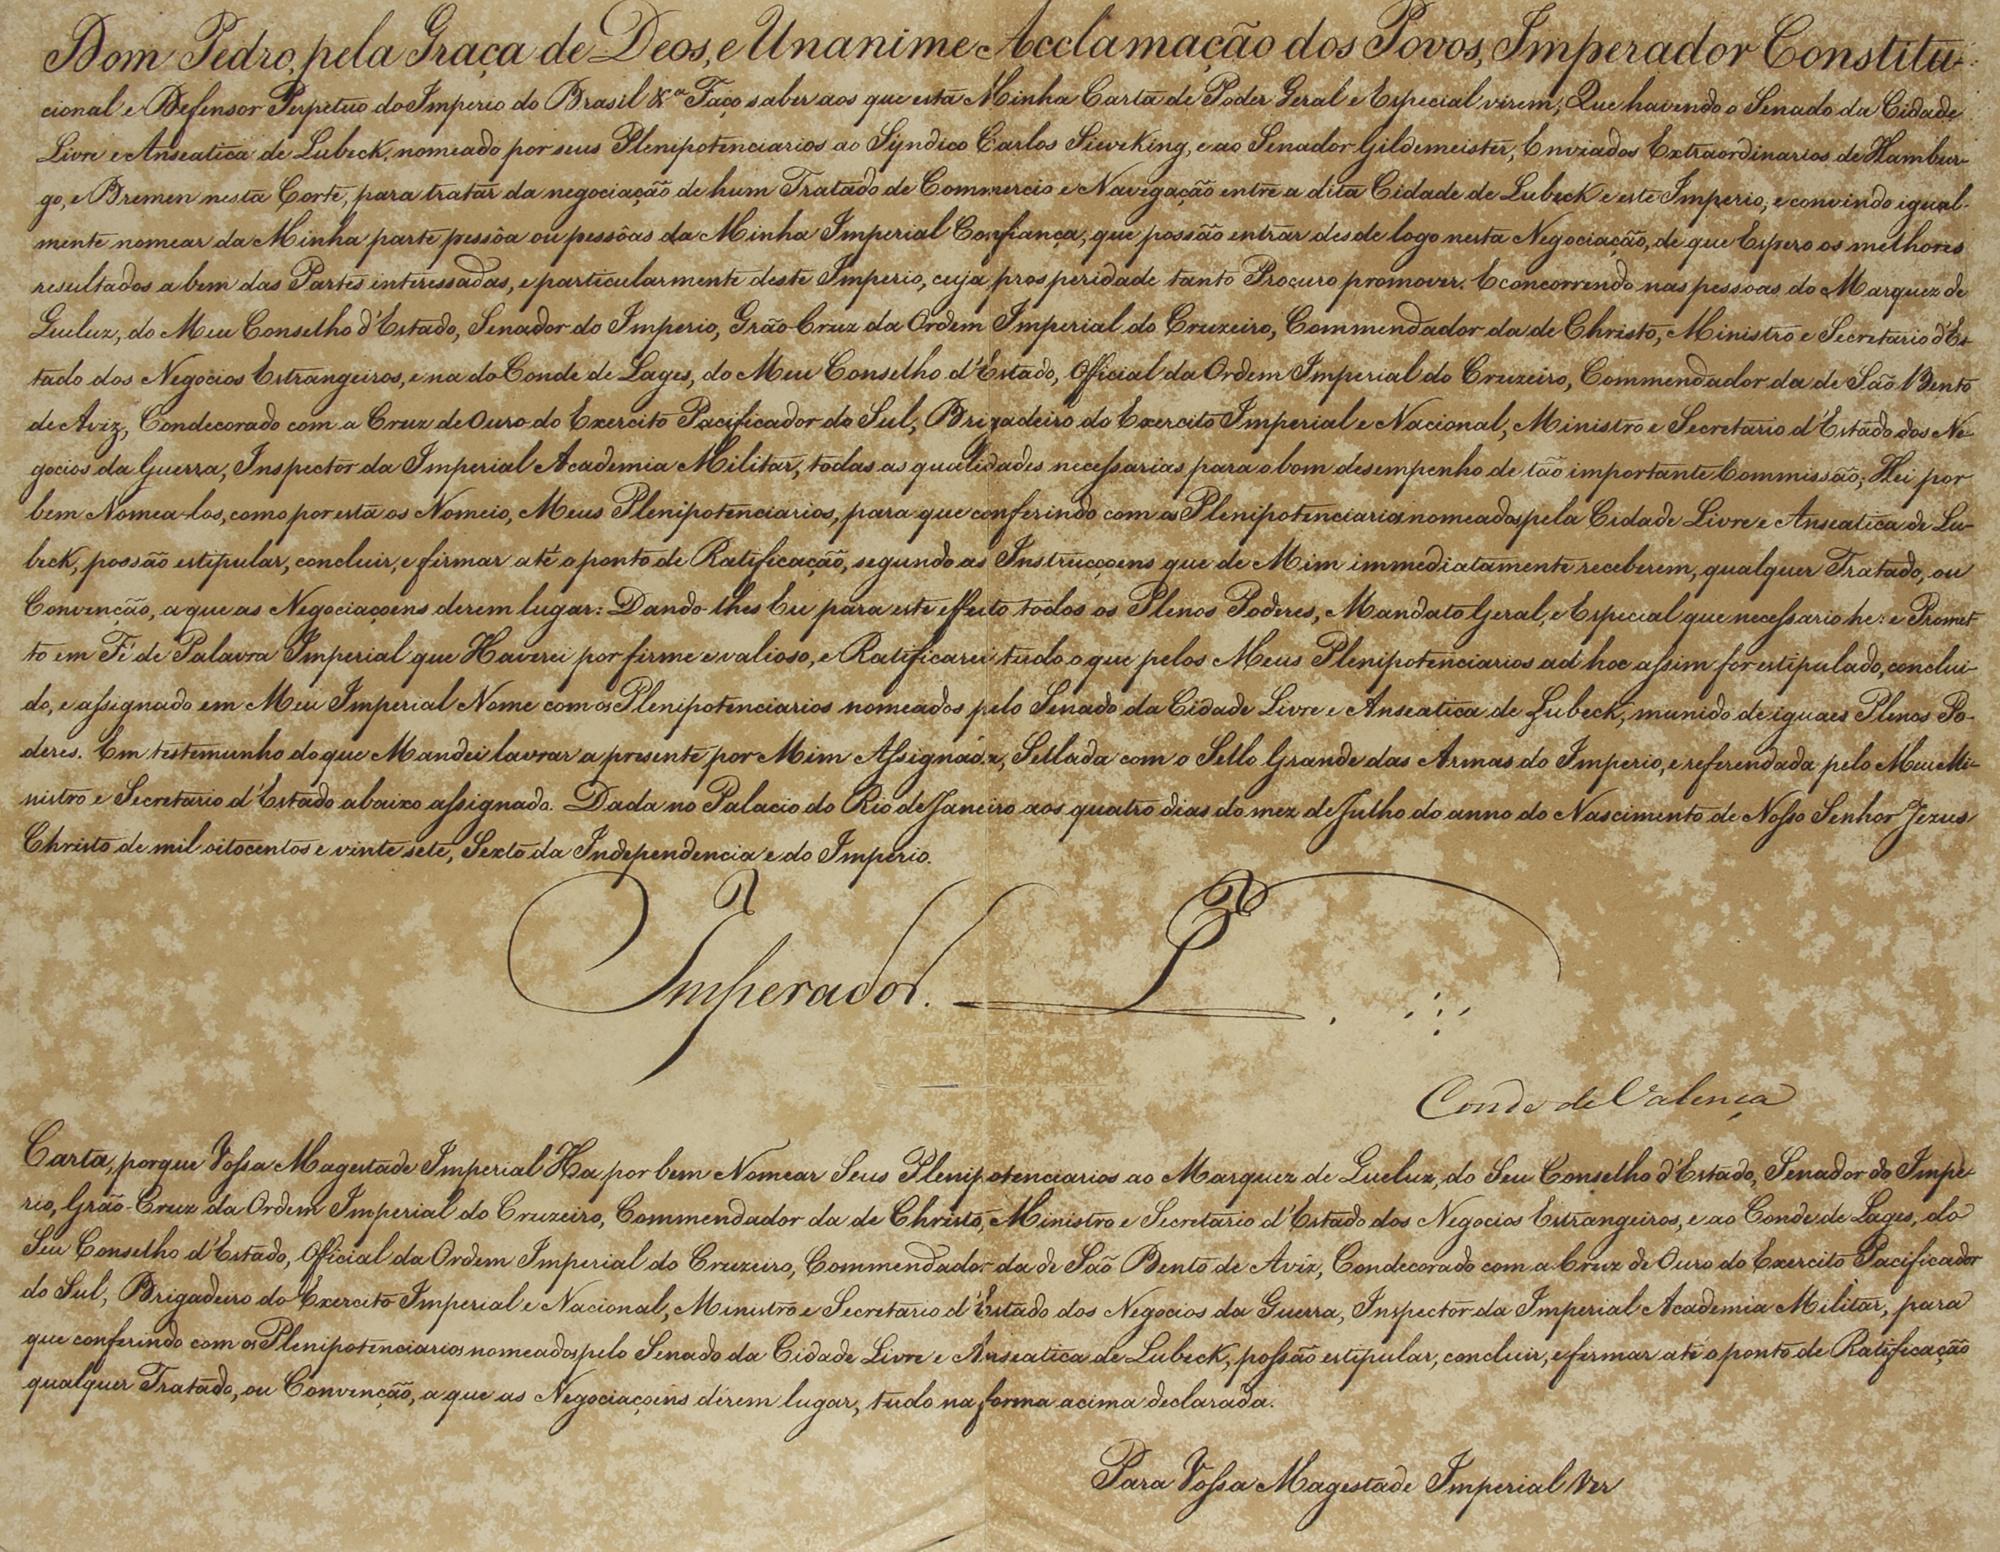 Dom Pedro, pela Graça de Deos, e Unanime Acclamação dos Povos, Imperador Constitu-
cional e Defensor Perpetuo do Imperio do Brasil &ª Faço saber aos que esta Minha Carta de Poder Geral e Especial virem, Que havendo o Senado da Cidade
Livre e Anseatica de Lubeck, nomeado por seus Plenipotenciarios ao Syndico Carlos Sieveking, e ao Senador Gildemeister, Enviados Extraordinarios de Hambur-
go, e Bremen nesta Corte, para tratar da negociação de hum Tratado de Commercio e Navegação entre a dita Cidade de Lubeck e este Imperio, e convindo igual-
mente nomear da Minha parte pessôa ou pessôas da Minha Imperial Confiança, que possão entrar desde logo nesta Negociação, de que Espero os melhores
resultados a bem das Partes interessadas, e particularmente deste Imperio, cuja prosperidade tanto Procuro promover. E concorrendo nas pessoas do Marquez de
Queluz, do Meu Conselho d'Estado, Senador do Imperio, Grão-Cruz da Ordem Imperial do Cruzeiro, Commendador da de Christo, Ministro e Secretario d'Es-
tado dos Negocios Estrangeiros, e na do Conde de Lages, do Meu Conselho d'Estado, Official da Ordem Imperial do Cruzeiro, Commendador da de São Bento
de Aviz, Condecorado com a Cruz de Ouro do Exercito Pacificador do Sul, Brigadeiro do Exercito Imperial e Nacional, Ministro e Secretario d'Estado dos Ne-
gocios da Guerra, Inspector da Imperial Academia Militar, todas as qualidades necessarias para o bom desempenho de tão importante Commissão; Hei por
bem Nomea-los, como por esta os Nomeio, Meus Plenipotenciarios, para que conferindo com os Plenipotenciarios nomeados pela Cidade Livre e Anseatica de Lu-
beck, possão estipular, concluir, e firmar até o ponto de Ratificação, segundo as Instrucçoens que de Mim immediatamente receberem, qualquer Tratado, ou
Convenção, a que as Negociaçoens derem lugar: Dando-lhes Eu para este effeito todos os Plenos Poderes, Mandato Geral, e Especial que necessario he: e Promet-
to em Fé de Palavra Imperial que Haverei por firme e valioso, e Ratificarei tudo o que pelos Meus Plenipotenciarios ad hoc assim for estipulado, conclui-
do, e assignado em Meu Imperial Nome com os Plenipotenciarios nomeados pelo Senado da Cidade Livre e Anseatica de Lubeck, munido de iguaes Plenos Po-
deres. Em testemunho do que Mandei lavrar a presente por Mim Assignada, Sellada com o Sello Grande das Armas do Imperio, e referendada pelo Meu Mi-
nistro e Secretario d'Estado abaixo assignado. Dada no Palacio do Rio de Janeiro aos quatro dias do mez de Julho do anno do Nascimento de Nosso Senhor Jezus
Christo de mil oitocentos e vinte sete, Sexto da Independencia e do Imperio.
Imperador. P
Conde de Valença
Carta, porque Vossa Magestade Imperial Ha por bem Nomear Seus Plenipotenciarios ao Marquez de Queluz, do Seu Conselho d'Estado, Senador do Impe-
rio, Grão-Cruz da Ordem Imperial do Cruzeiro, Commendador da de Christo, Ministro e Secretario d'Estado dos Negocios Estrangeiros, e ao Conde de Lages, do
Seu Conselho d'Estado, Official da Ordem Imperial do Cruzeiro, Commendador da de São Bento de Aviz, Condecorado com a Cruz de Ouro do Exercito Pacificador
do Sul, Brigadeiro do Exercito Imperial e Nacional, Ministro e Secretario d'Estado dos Negocios da Guerra, Inspector da Imperial Academia Militar, para
que conferindo com os Plenipotenciarios nomeados pelo Senado da Cidade Livre e Anseatica de Lubeck, possão estipular, concluir, e firmar até o ponto de Ratificação
qualquer Tratado, ou Convenção, a que as Negociaçoens derem lugar, tudo na forma acima declarada.
Para Vossa Magestade Imperial Ver